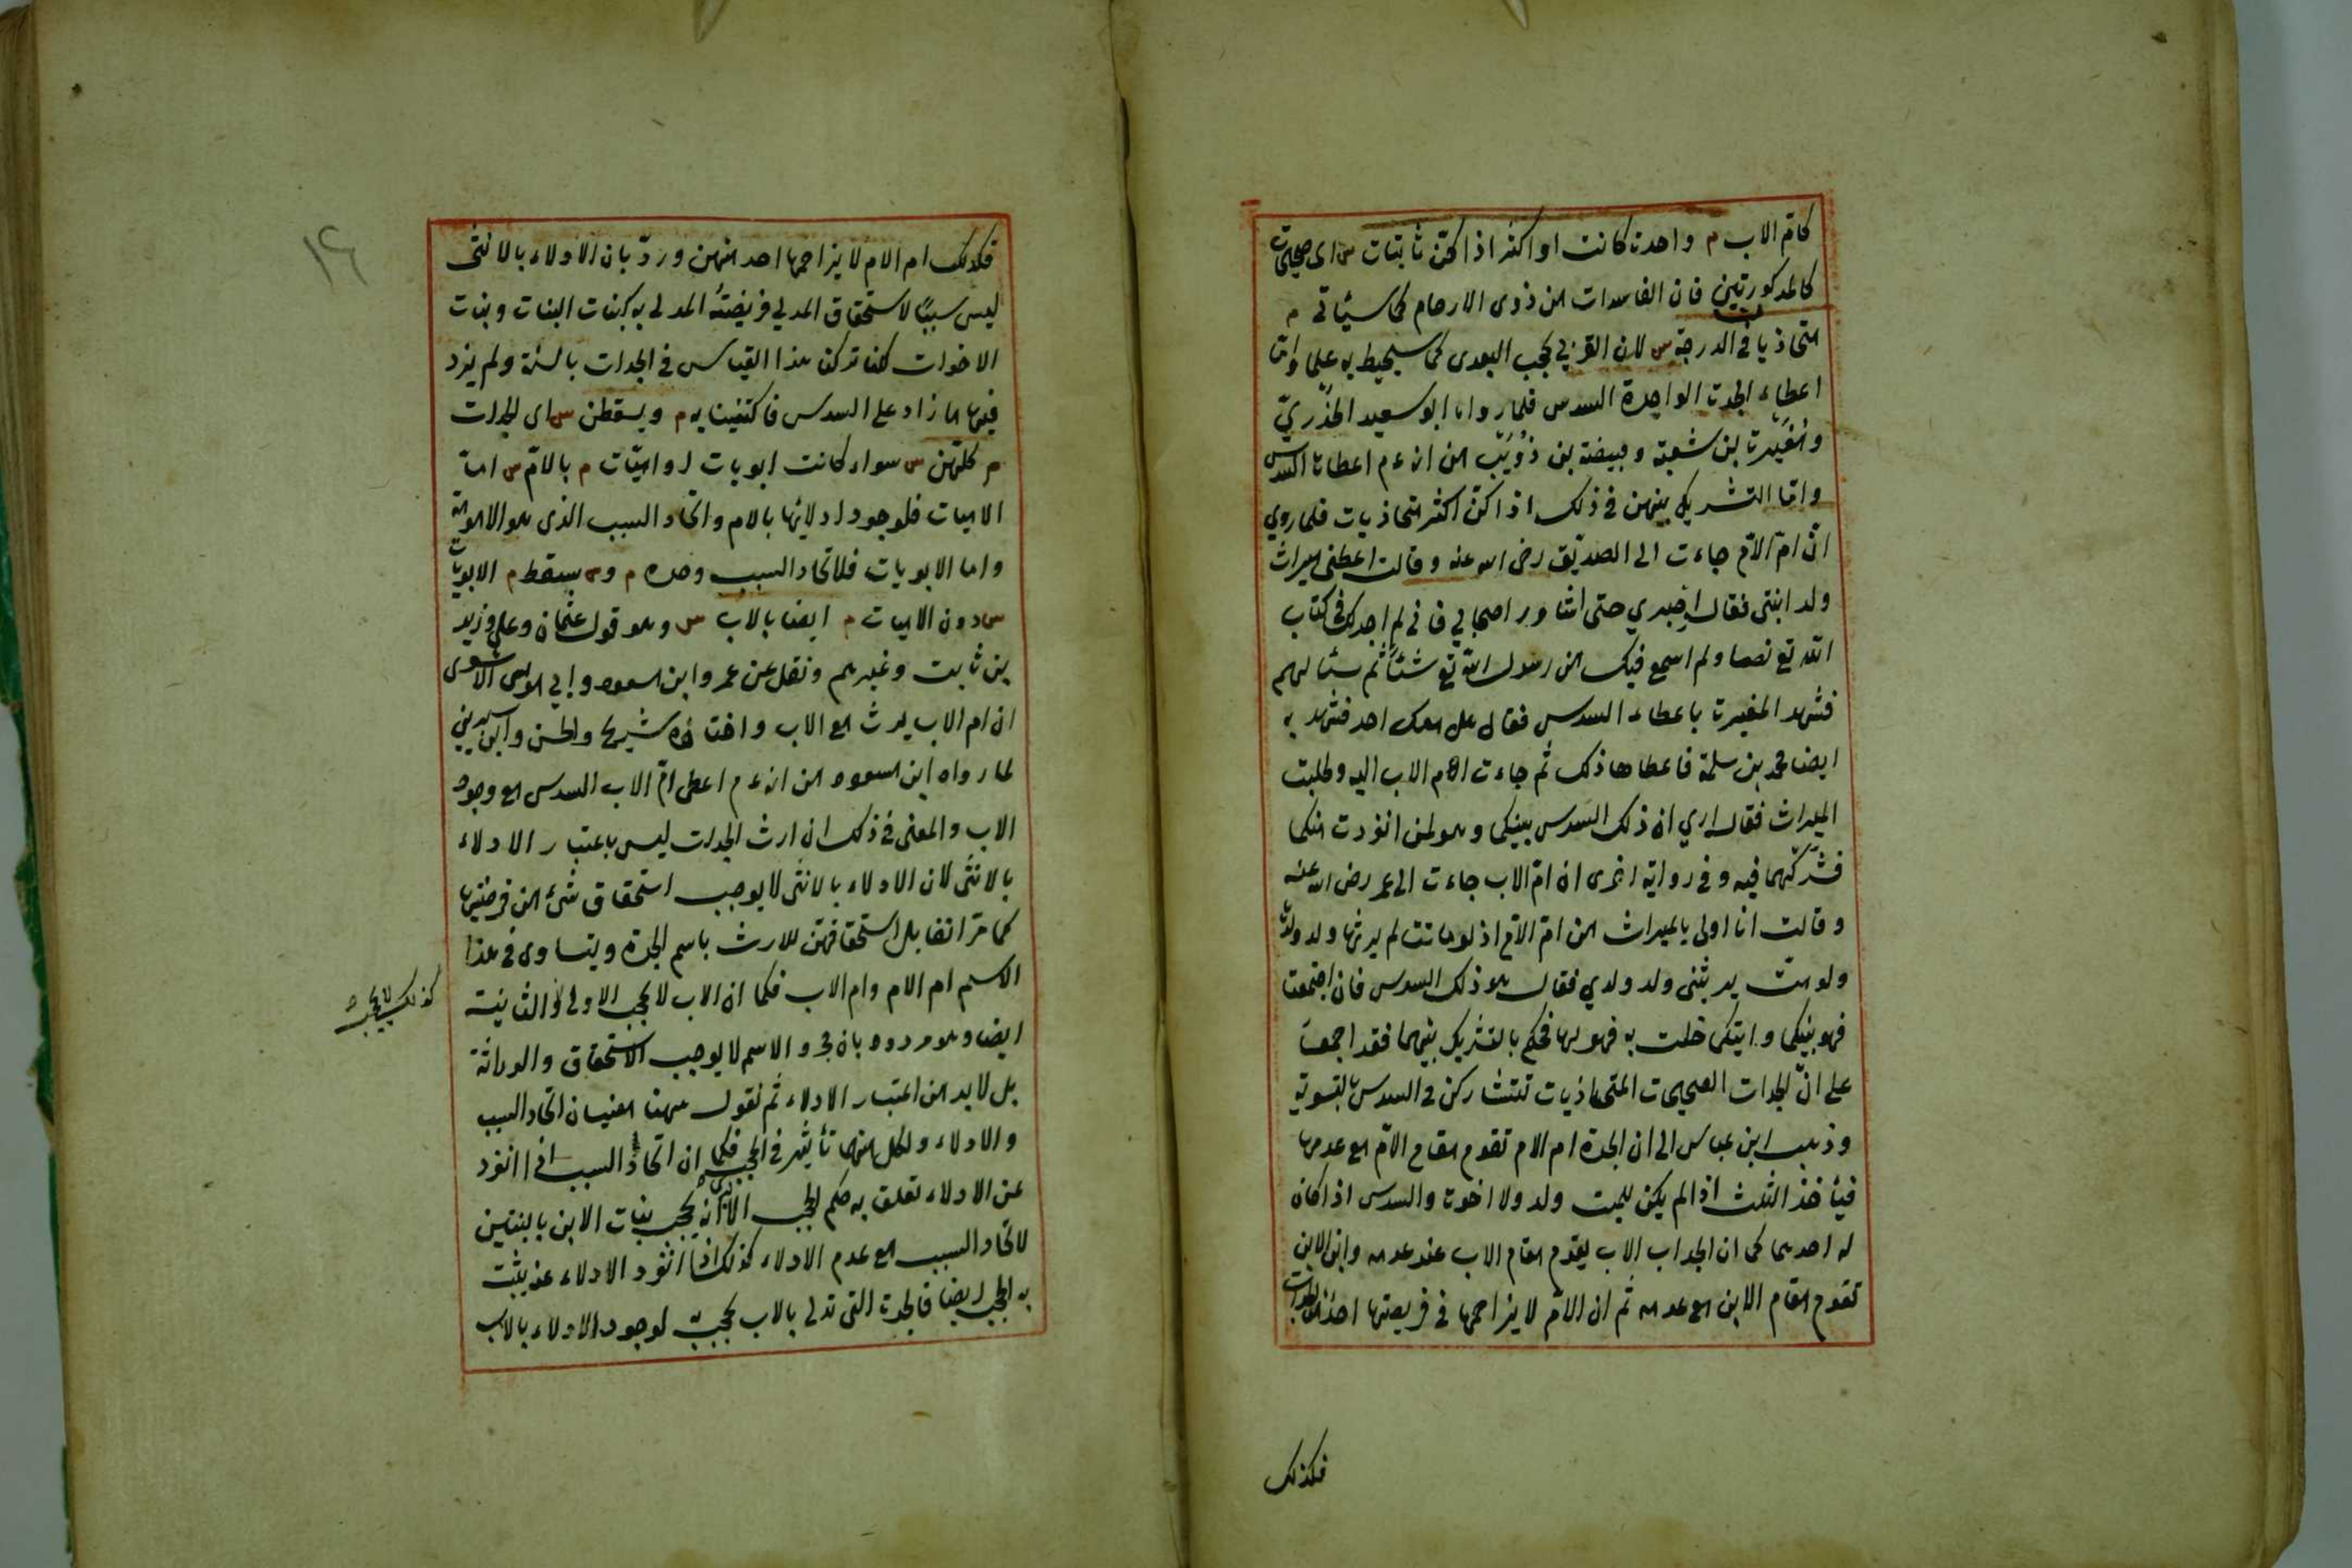 كامّ الاب م واحدة كانت او اكثر اذا كنّ ثابتات س اى صحيحات
كالمذكورتين فان الفاسدات من ذوى الارحام كما سيأتى م
متحاذيات فى الدرجة س لان القربى تحجب البعدى كما سيحيط به علما واما
اعطاء الجدة الواحدة السدس فلما رواه ابو سعيد الخدرىّ
ومغيرة بن شعبة وقبيصة بن ذُوَيب من انه عم اعطاها السدس
وامّا التشريك بينهن فى ذلك اذا كنّ اكثر متحاذيات فلما روي
انّ امّ الامّ جاءت الى الصديق رضى الله عنه وقالت اعطنى ميراث
ولد ابنتى فقال اصبري حتى اشاور اصحابي فانى لم اجد لك فى كتاب
الله تع نصا ولم اسمع فيك من رسول الله تع شئاً ثم سئالهم
فشهد المغيرة باعطاء السدس فقال هل معك احد فشهد به
ايضا محمد بن سلمة فاعطاها ذلك ثم جاءت ام الاب اليه وطلبت
الميراث فقال اري ان ذلك السدس بينكما وهو لمن انفردت منكما
فشرّكهما فيه وفى رواية اخرى ان امّ الاب جاءت الى عمر رضى الله عنه
وقالت انا اولى بالميراث من امّ الامّ اذ لو ماتت لم يرثها ولد ولدها
ولو متّ يرثنى ولد ولدي فقال هو ذلك السدس فان اجتمعتا
فهو بينكما وايتكما خلت به فهو لها فحكم بالتشريك بينهما فقد اجمعا
على انّ الجدات الصحيحات المتحاذيات تتشاركن فى السدس بتسوية
وذهب ابن عباس الى ان الجدة ام الام تقوم مقام الامّ مع عدمها
فيأخذ الثلث اذا لم يكن للميت ولد ولا اخوة والسدس اذا كان
له احدهما كما ان الجد اب الاب يقوم مقام الاب عند عدمه وابن الابن
تقوم مقام الابن مع عدمه ثم ان الامّ لا يزاحمها فى فريضتها احد من الجدات
فكذلك
١٤
فكذلك ام الام لا يزاحمها احد منهن وردّ بان الادلاء بالانثى
ليس سببًا لاستحقاق المدلي فريضتُه المدلى به كبنات البنات وبنات
الاخوات لكنا تركنا هذا القياس فى الجدات بالسنة ولم يزد
فيها ما زاد على السدس فاكتفينا به م ويسقطن س اى الجدات
م كلّهن س سواء كانت ابويات او اميّات م بالامّ س امّا
الاميات فلوجود ادلائها بالام واتحاد السبب الذى هو الامومة
واما الابويات فلاتحاد السبب وحده م و س يسقط م الابويات
س دون الاميات م ايضا بالاب س وهو قول عثمان وعلى وزيد
بن ثابت وغيرهم ونقل عن عمر وابن مسعود وابي موسى الاشعرى
ان ام الاب يرث مع الاب واختاره شريح والحسن وابن سيرين
لما رواه ابن مسعود من انه عم اعطى امّ الاب السدس مع وجود
الاب والمعنى فى ذلك ان ارث الجدات ليس باعتبار الادلاء
بالانثى لان الادلاء بالانثى لا يوجب استحقاق شئ من فرضيتها
كما مرّ انفا بل استحقاقهنّ للارث باسم الجدة ويتساوى فى هذا
الاسم ام الام وام الاب فكما ان الاب لا يحجب الاولى والثانية
كذلك لا يحجب
ايضا وهو مردود بان مجرد الاسم لا يوجب الاستحقاق والوراثة
بل لا بد من اعتبار الادلاء ثم نقول ههنا معنيان اتحاد السبب
والادلاء ولكل منهما تأثير فى الحجب فكما ان اتحاد السبب اذا انفرد
عن الادلاء تعلق به حكم الحجب الا يرى انه يحجب بنات الابن بالبنتين
لاتحاد السبب مع عدم الادلاء كذلك اذا انفرد الادلاء عنه يثبت
به الحجب ايضا فالجدة التى تدلى بالاب تحجب به لوجود الادلاء بالاب